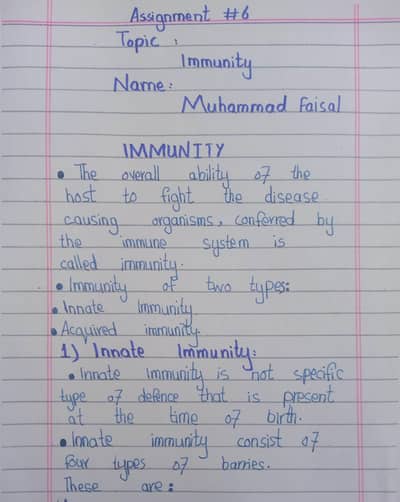 Assignment #6
Topic :
Immunity
Name:
Muhammad Faisal
IMMUNITY
• The overall ability of the
host to fight the disease
causing organisms, conferred by
the immune system is
called immunity.
• Immunity of two types:
• Innate Immunity.
• Acquired immunity.
1) Innate Immunity:
• Innate Immunity is not specific
type of defence that is present
at the time of birth.
• Innate immunity consist of
four types of barries.
These are :